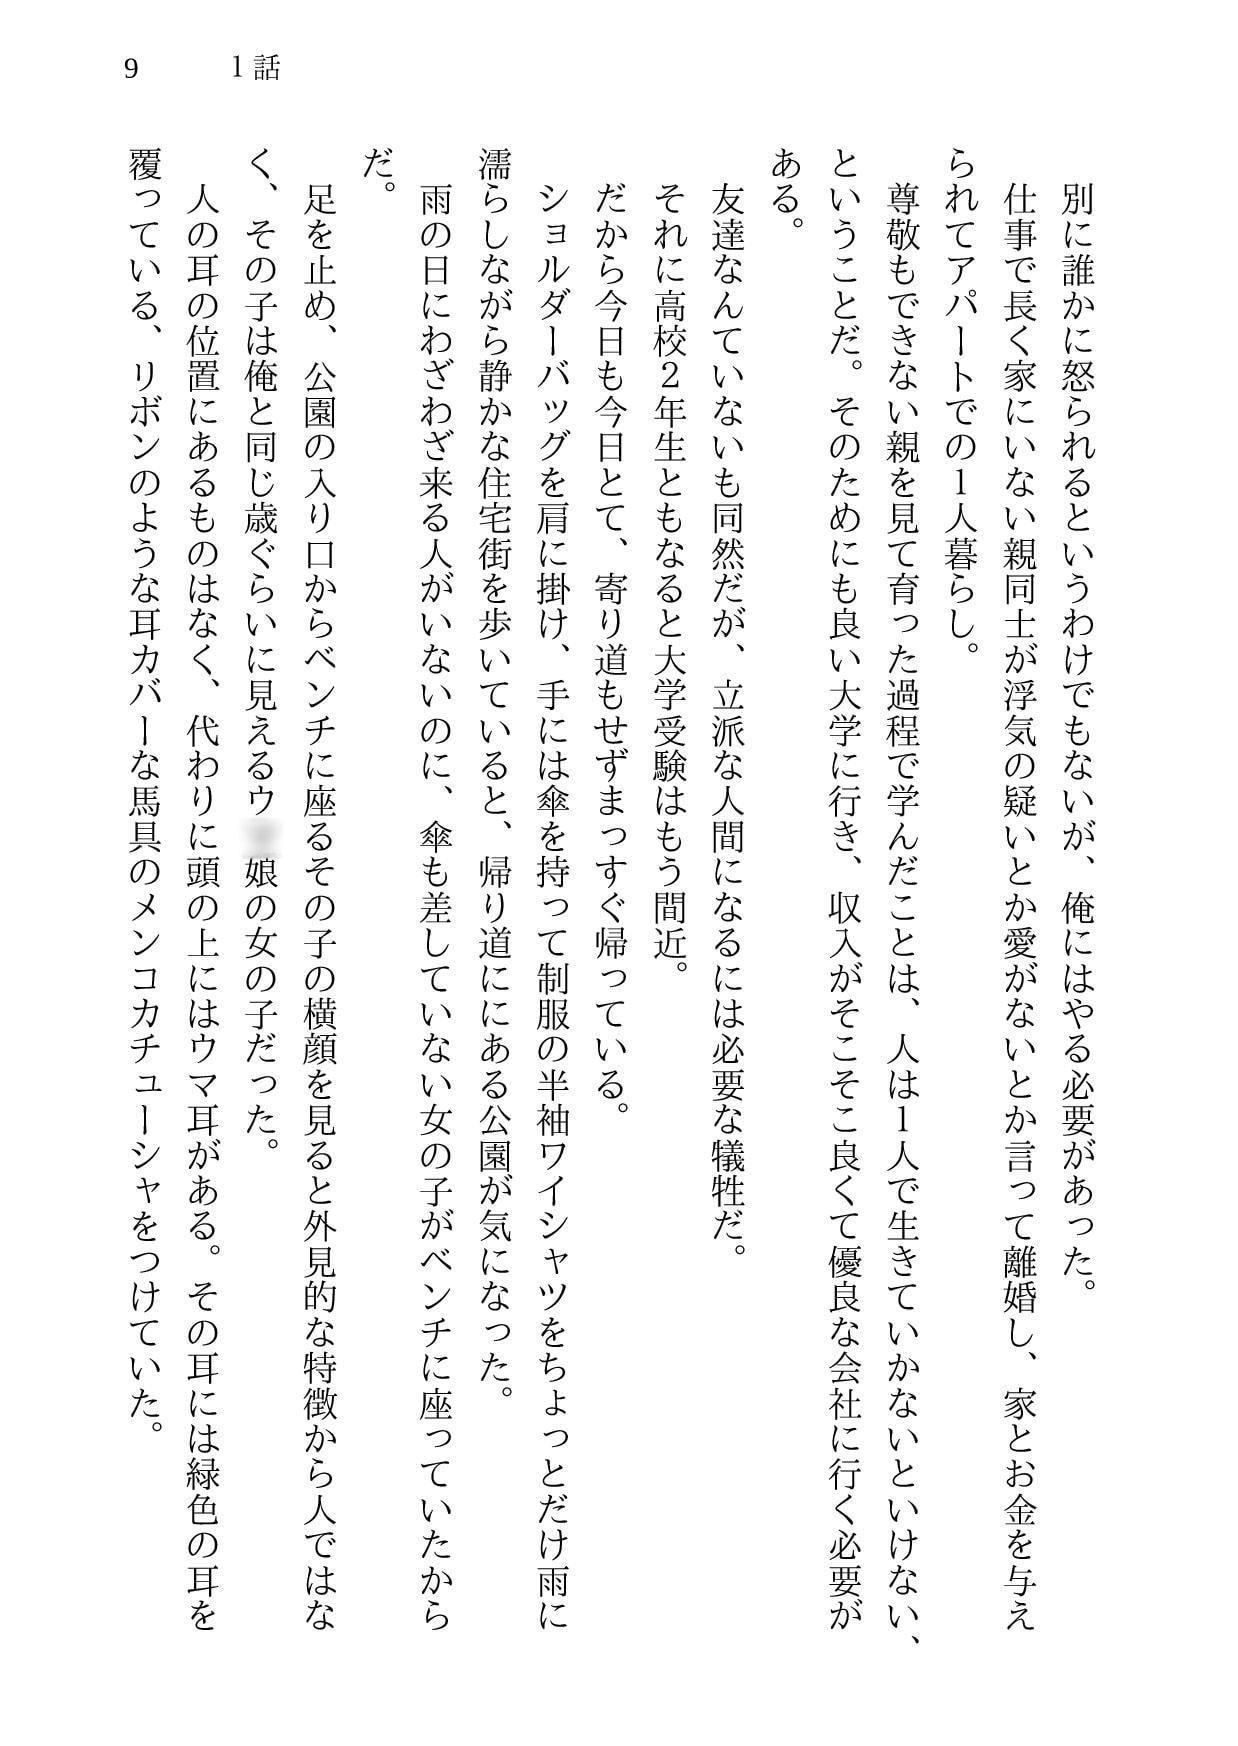 9 1話
別に誰かに怒られるというわけでもないが、俺にはやる必要があった。
仕事で長く家にいない親同士が浮気の疑いとか愛がないとか言って離婚し、家とお金を与え
られてアパートでの1人暮らし。
尊敬もできない親を見て育った過程で学んだことは、人は1人で生きていかないといけない、
ということだ。そのためにも良い大学に行き、収入がそこそこ良くて優良な会社に行く必要が
ある。
友達なんていないも同然だが、立派な人間になるには必要な犠牲だ。
それに高校2年生ともなると大学受験はもう間近。
だから今日も今日とて、寄り道もせずまっすぐ帰っている。
ショルダーバッグを肩に掛け、手には傘を持って制服の半袖ワイシャツをちょっとだけ雨に
濡らしながら静かな住宅街を歩いていると、帰り道ににある公園が気になった。
雨の日にわざわざ来る人がいないのに、傘も差していない女の子がベンチに座っていたから
だ。
足を止め、公園の入り口からベンチに座るその子の横顔を見ると外見的な特徴から人ではな
く、その子は俺と同じ歳ぐらいに見えるウ娘の女の子だった。
人の耳の位置にあるものはなく、代わりに頭の上にはウマ耳がある。その耳には緑色の耳を
覆っている、リボンのような耳カバーな馬具のメンコカチューシャをつけていた。